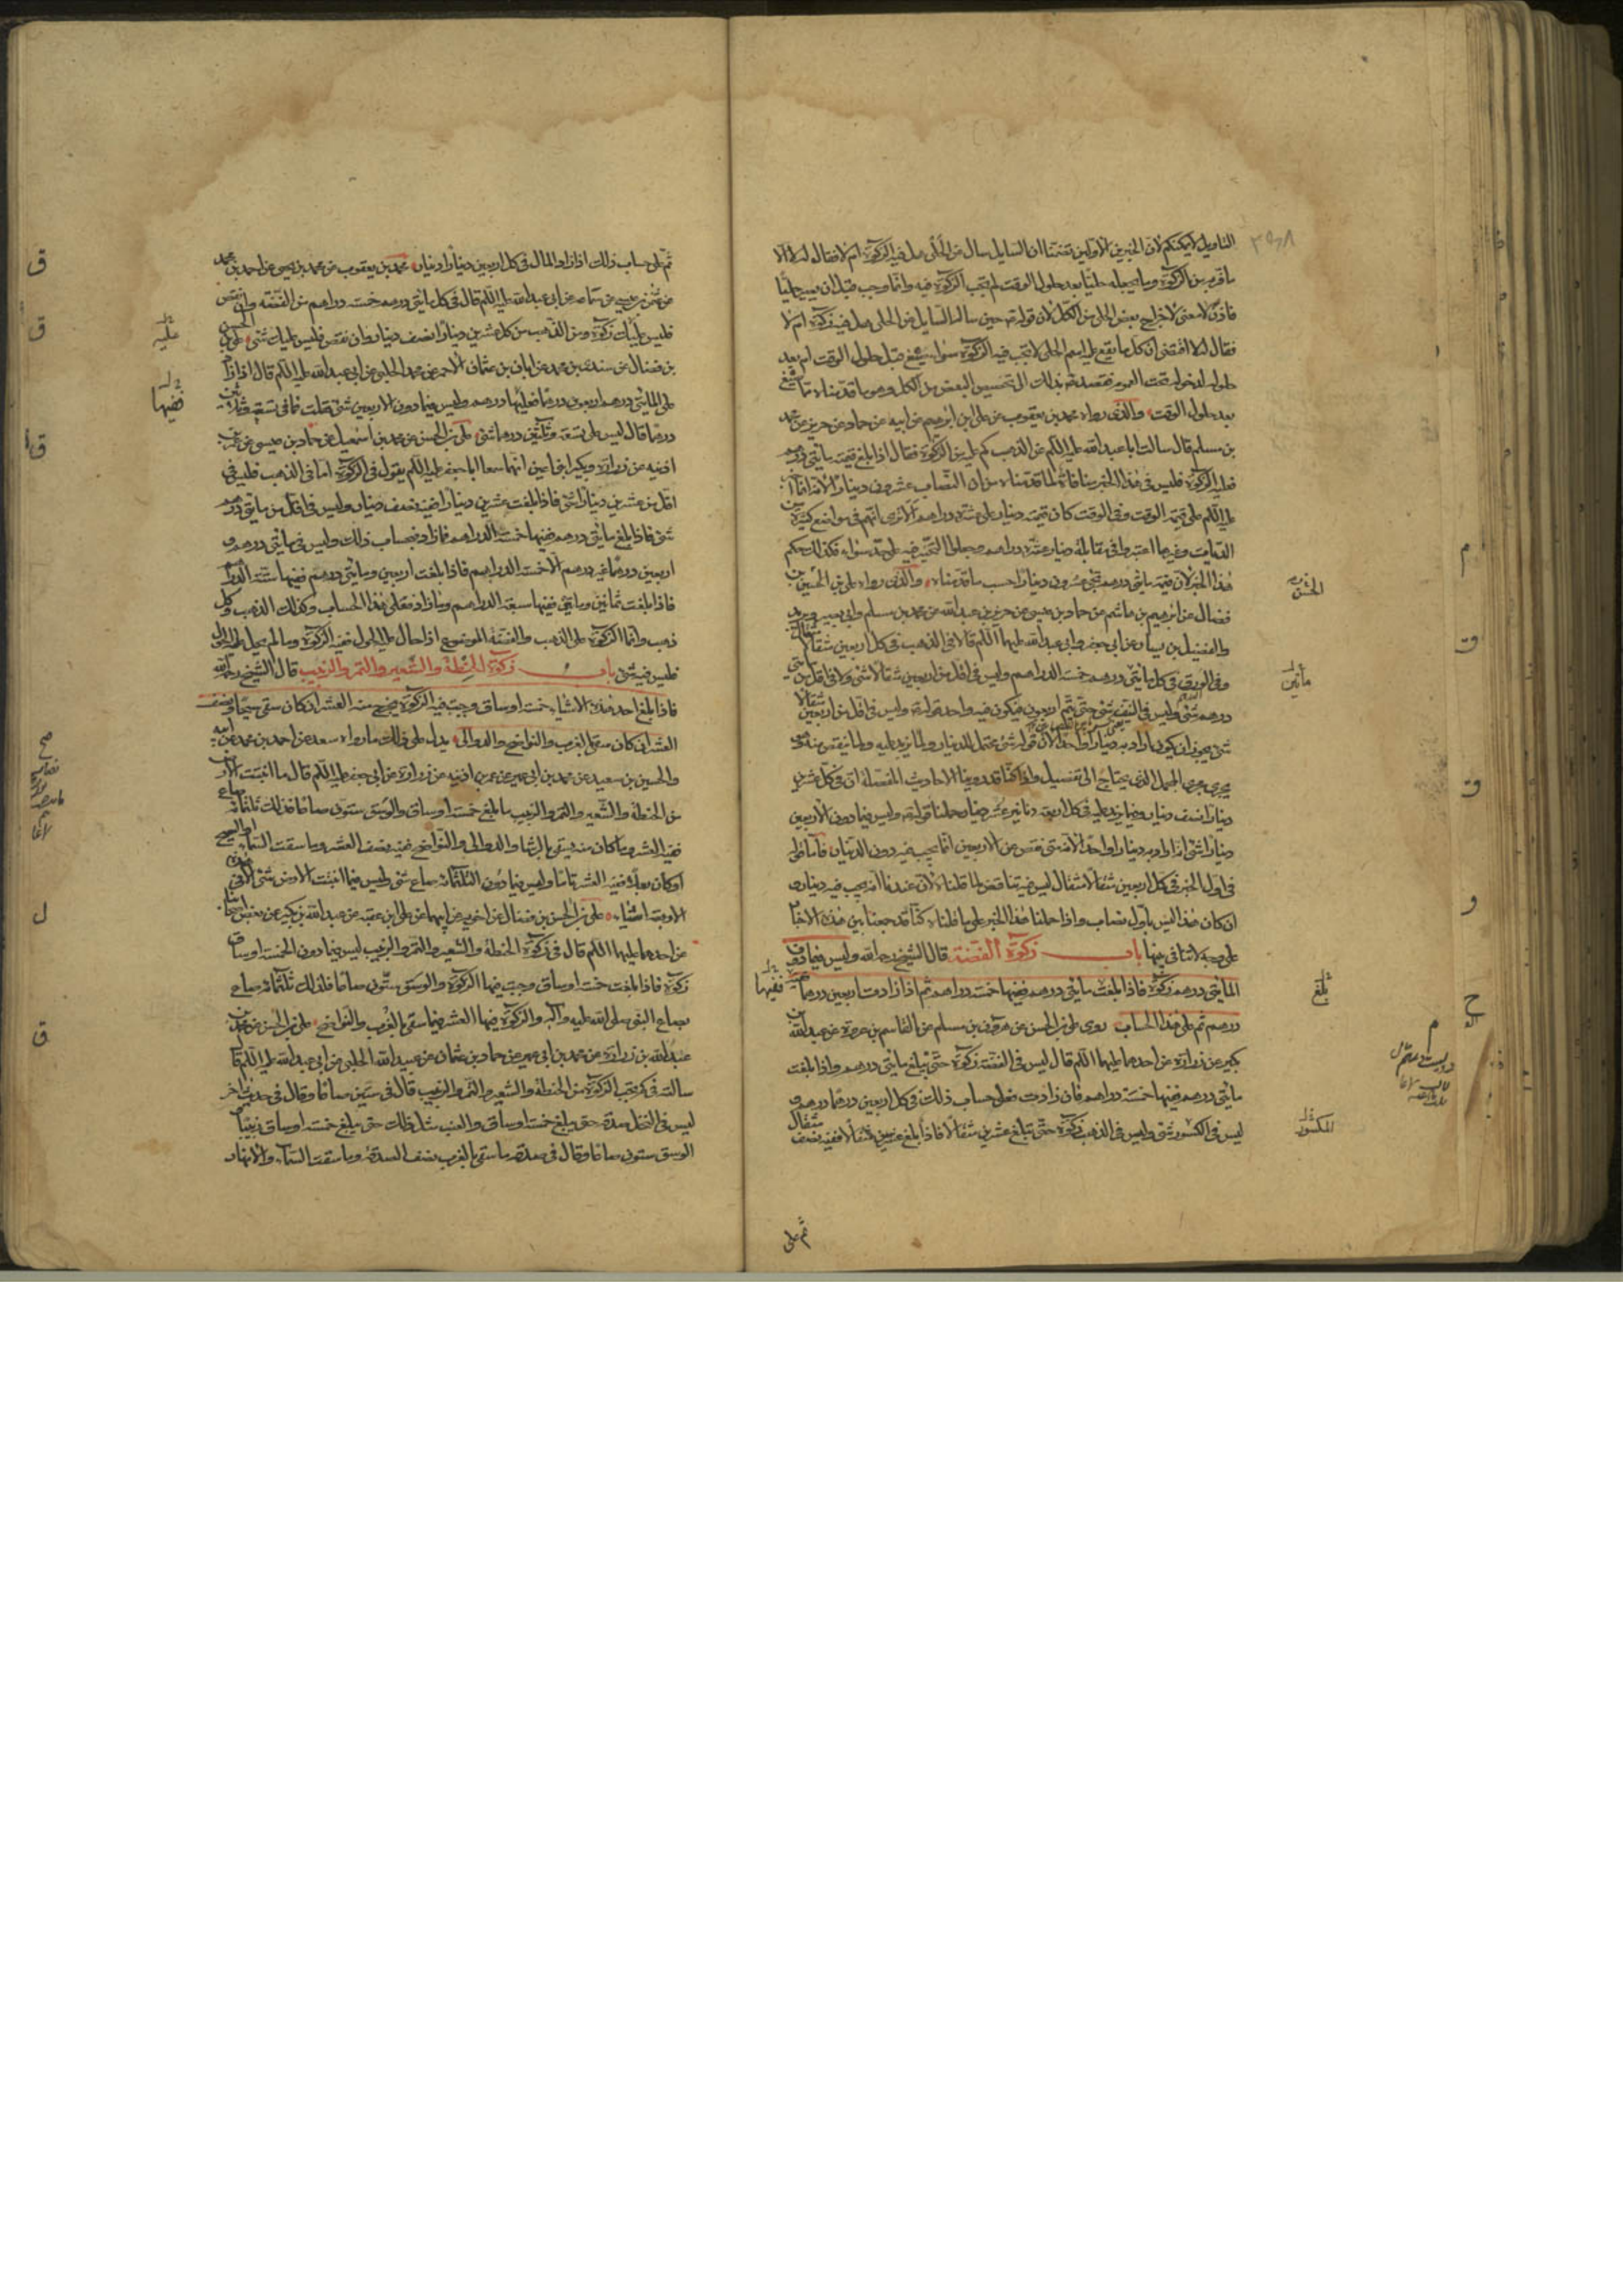 التاويل لا يمكنكم لان الخبرين الاولين تضمنا ان السايل سال عن الحلى هل فيه الزكوة ام لا فقال له لا الا
ما فر به من الزكوة وما يجعله حليّا بعد حلول الوقت لم تجب الزكوة فيه وانما وجب قبل ان يصير حليّا
فاذن لا معنى لاخراج بعض الحلى من الكل لان قوله حين ساله السايل عن الحلى هل فيه زكوة ام لا
فقال لا اقتضى ان كل ما يقع عليه اسم الحلى لا تجب فيه الزكوة سواء صيغ قبل حلول الوقت ام بعد
حلوله لدخوله تحت العموم فقصد بذلك الى تخصيص البعض من الكل وهو ما قدمناه مما صيغ
بعد حلول الوقت والذى رواه محمد بن يعقوب عن على بن ابرهيم عن ابيه عن حماد عن حريز عن محمد
بن مسلم قال سالت ابا عبد الله عليه السلم عن الذهب كم عليه من الزكوة فقال اذا بلغ قيمته مايتى درهم
فعليه الزكوة فليس فى هذا الخبر منافاة لما قدمناه من ان النصاب عشرون دينارا لانه انما
عليه السلم على قيمة الوقت وفى الوقت كان قيمة دينار على عشرة دراهم الا ترى انهم فى مواضع كثيرة من
الديات وغيرها اعتبروا فى مقابلة دينار عشرة دراهم وجعلوا التخيير فيه على حد سواء فكذلك حكم
هذا الخبر لان قيمة مايتى درهم تجئ عشرون دينارا حسب ما قدمناه والذى رواه على بن الحسين بن
فضال عن ابرهيم بن هاشم عن حماد بن عيسى عن حريز بن عبد الله عن محمد بن مسلم وابى بصير وبريد
والفضيل بن يسار عن ابى جعفر وابى عبد الله عليهما السلم قالا فى الذهب فى كل اربعين مثقالا مثقال
وفى الورق فى كل مايتى درهم خمسة الدراهم وليس فى اقل من اربعين مثقالا شئ ولا فى اقل من مايتى
درهم شئ وليس فى النيف شئ حتى يتم اربعون فيكون فيه واحد قوله وليس فى اقل من اربعين مثقالا
شئ يجوز ان يكون اراد به دينارا واحدا لان قوله شئ محتمل للدينار ولما يزيد عليه ولما ينقص منه وهو
يجرى مجرى المجمل الذى يحتاج الى تفصيل واذا كنا قد روينا الاحاديث المفصلة ان فى كل عشرين
دينارا نصف دينار وفيما يزيد عليه فى كل اربعة دنانير عشر دينار حملنا قوله وليس فيما دون الاربعين
دينارا شئ انه اراد به دينارا واحدا لانه متى نقص عن الاربعين انما يجب فيه دون الدينار فاما قوله
فى اول الخبر فى كل اربعين مثقالا مثقال ليس فيه تناقض لما قلناه لان عندنا انه يجب فيه دينار و
ان كان هذا ليس باول نصاب واذا حملنا هذا الخبر على ما قلناه كنا قد جمعنا بين هذه الاخبار
على وجه لا تنافى بينها باب زكوة الفضة قال الشيخ رحمه الله وليس فيما دون
المايتى درهم زكوة فاذا بلغت مايتى درهم ففيها خمسة دراهم ثم اذا زادت اربعين درهما ففيها
درهم ثم على هذا الحساب روى على بن الحسن عن هرون بن مسلم عن القاسم بن عروة عن عبد الله بن
بكير عن زرارة عن احدهما عليهما السلم قال ليس فى الفضة زكوة حتى تبلغ مايتى درهم واذا بلغت
مايتى درهم ففيها خمسة دراهم فان زادت فعلى حساب ذلك فى كل اربعين درهما درهم و
ليس فى الكسور شئ وليس فى الذهب زكوة حتى تبلغ عشرين مثقالا فاذا بلغ عشرين مثقالا ففيه نصف مثقال
ثم على
ثم على حساب ذلك اذا زاد المال فى كل اربعين دينارا دينار محمد بن يعقوب عن محمد بن يحيى عن احمد بن محمد
عن عثمن بن عيسى عن سماعة عن ابى عبد الله عليه السلم قال فى كل مايتى درهم خمسة دراهم من الفضة وان نقص
فليس عليك زكوة ومن الذهب من كل عشرين دينارا نصف دينار وان نقص فليس عليك شئ على بن الحسن
بن فضال عن سندى بن محمد عن ابان بن عثمان الاحمر عن محمد الحلبى عن ابى عبد الله عليه السلم قال اذا زاد
على المايتى درهم اربعون درهما فعليها درهم وليس فيما دون الاربعين شئ فقلت فما فى تسعة وثلثين
درهما قال ليس على تسعة وثلثين درهما شئ على بن الحسن عن محمد بن اسمعيل عن حماد بن عيسى عن عمر بن
اذينة عن زرارة وبكير ابنى اعين انهما سمعا ابا جعفر عليه السلم يقول فى الزكوة اما فى الذهب فليس فى
اقل من عشرين دينارا شئ فاذا بلغت عشرين دينارا ففيه نصف دينار وليس فى اقل من مايتى درهم
شئ فاذا بلغ مايتى درهم ففيها خمسة الدراهم فما زاد فبحساب ذلك وليس فى مايتى درهم و
اربعين درهما غير درهم الا خمسة الدراهم فاذا بلغت اربعين ومايتى درهم ففيها ستة الدراهم
فاذا بلغت ثمانين ومايتى ففيها سبعة الدراهم وما زاد فعلى هذا الحساب وكذلك الذهب وكل
ذهب وانما الزكوة على الذهب والفضة الموضوع اذا حال عليه الحول ففيه الزكوة وما لم يحل عليه الحول
فليس فيه شئ باب زكوة الحنطة والشعير والتمر والزبيب قال الشيخ رحمه الله
فاذا بلغ احد هذه الاشياء خمسة اوساق وجبت فيه الزكوة يخرج منه العشر ان كان سقى سيحا ونصف
العشر ان كان سقى بالغرب والنواضح والدوالى يدل على ذلك ما رواه سعد عن احمد بن محمد عن ابيه
والحسين بن سعيد عن محمد بن ابى عمير عن عمر بن اذينة عن زرارة عن ابى جعفر عليه السلم قال ما انبتت الارض
من الحنطة والشعير والتمر والزبيب ما بلغ خمسة اوساق والوسق ستون صاعا فذلك ثلثمائة صاع
ففيه العشر وما كان منه يسقى بالرشاء والدوالى والنواضح ففيه نصف العشر وما سقت السماء او السيح
او كان بعلا ففيه العشر تاما وليس فيما دون الثلثمائة صاع شئ وليس فيما انبتت الارض شئ الا فى هذه
الاربعة اشياء على بن الحسن بن فضال عن اخويه عن ابيهما عن على بن عقبة عن عبد الله بن بكير عن بعض اصحابنا
عن احدهما عليهما السلم قال فى زكوة الحنطة والشعير والتمر والزبيب ليس فيما دون الخمسة اوساق
زكوة فاذا بلغت خمسة اوساق وجبت فيها الزكوة والوسق ستون صاعا فذلك ثلثمائة صاع
بصاع النبى صلى الله عليه وآله والزكوة فيها العشر فيما سقى بالغرب والنواضح على بن الحسن عن محمد بن
عبيد الله بن زرارة عن محمد بن ابى عمير عن حماد بن عثمان عن عبيد الله الحلبى عن ابى عبد الله عليه السلم قال
سالته فى كم تجب الزكوة من الحنطة والشعير والتمر والزبيب قال فى ستين صاعا وقال فى حديث اخر
ليس فى النخل صدقة حتى يبلغ خمسة اوساق والعنب مثل ذلك حتى يبلغ خمسة اوساق زبيبا
الوسق ستون صاعا وقال فى صدقة ما سقى بالغرب نصف الصدقة وما سقت السماء والانهار